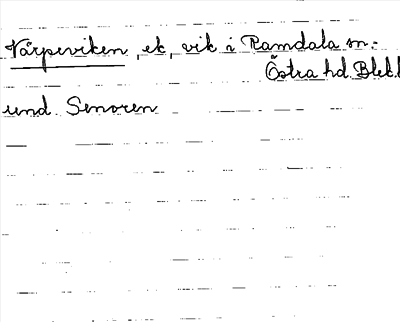 Värpeviken, ek, vik i Ramdala sn.:
Östra hd. Blek.l
und. Senoren